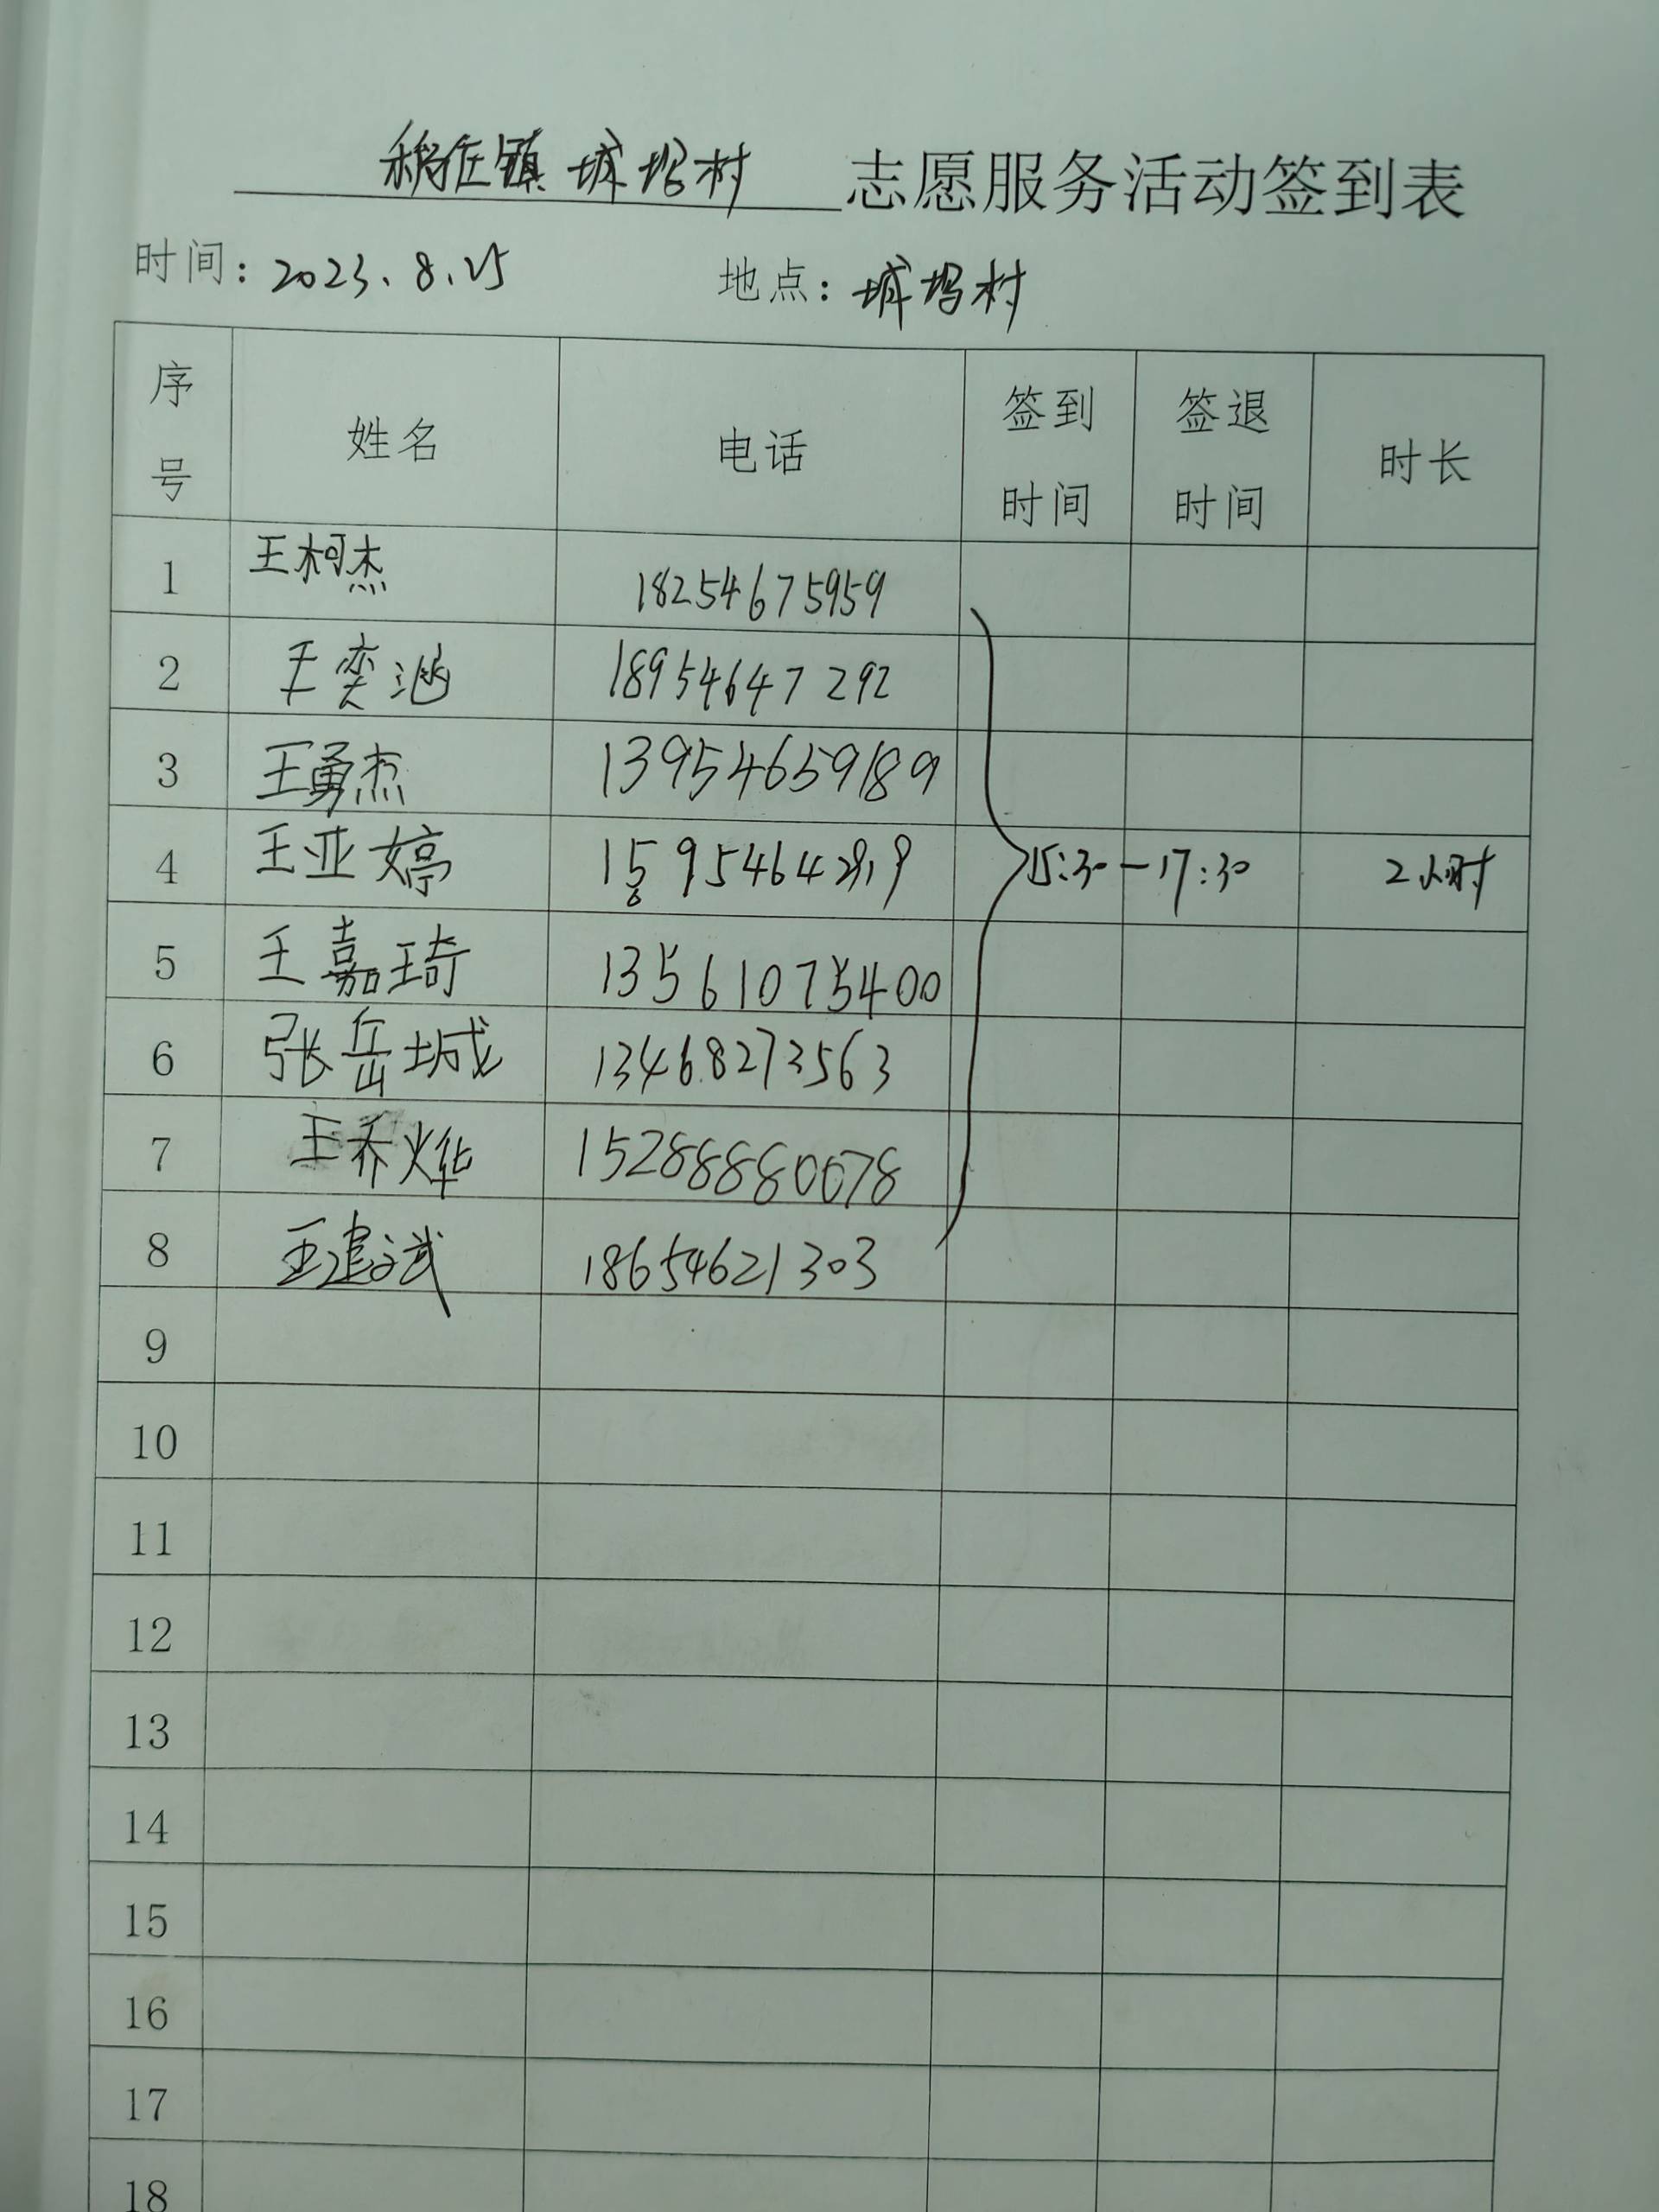 稍庄镇 城坞村 志愿服务活动签到表
时间：2023.8.25 地点：城坞村
序号 姓名 电话 签到时间 签退时间 时长
1 王柯杰 18254675959
2 王奕涵 18954647292
3 王勇杰 13954659189
4 王亚婷 15:30—17:30 2小时
5 王嘉琦 13561075400
6 张岳城 13468273563
7 王乔烨 15288880078
8 王建斌 18654621303
9
10
11
12
13
14
15
16
17
18